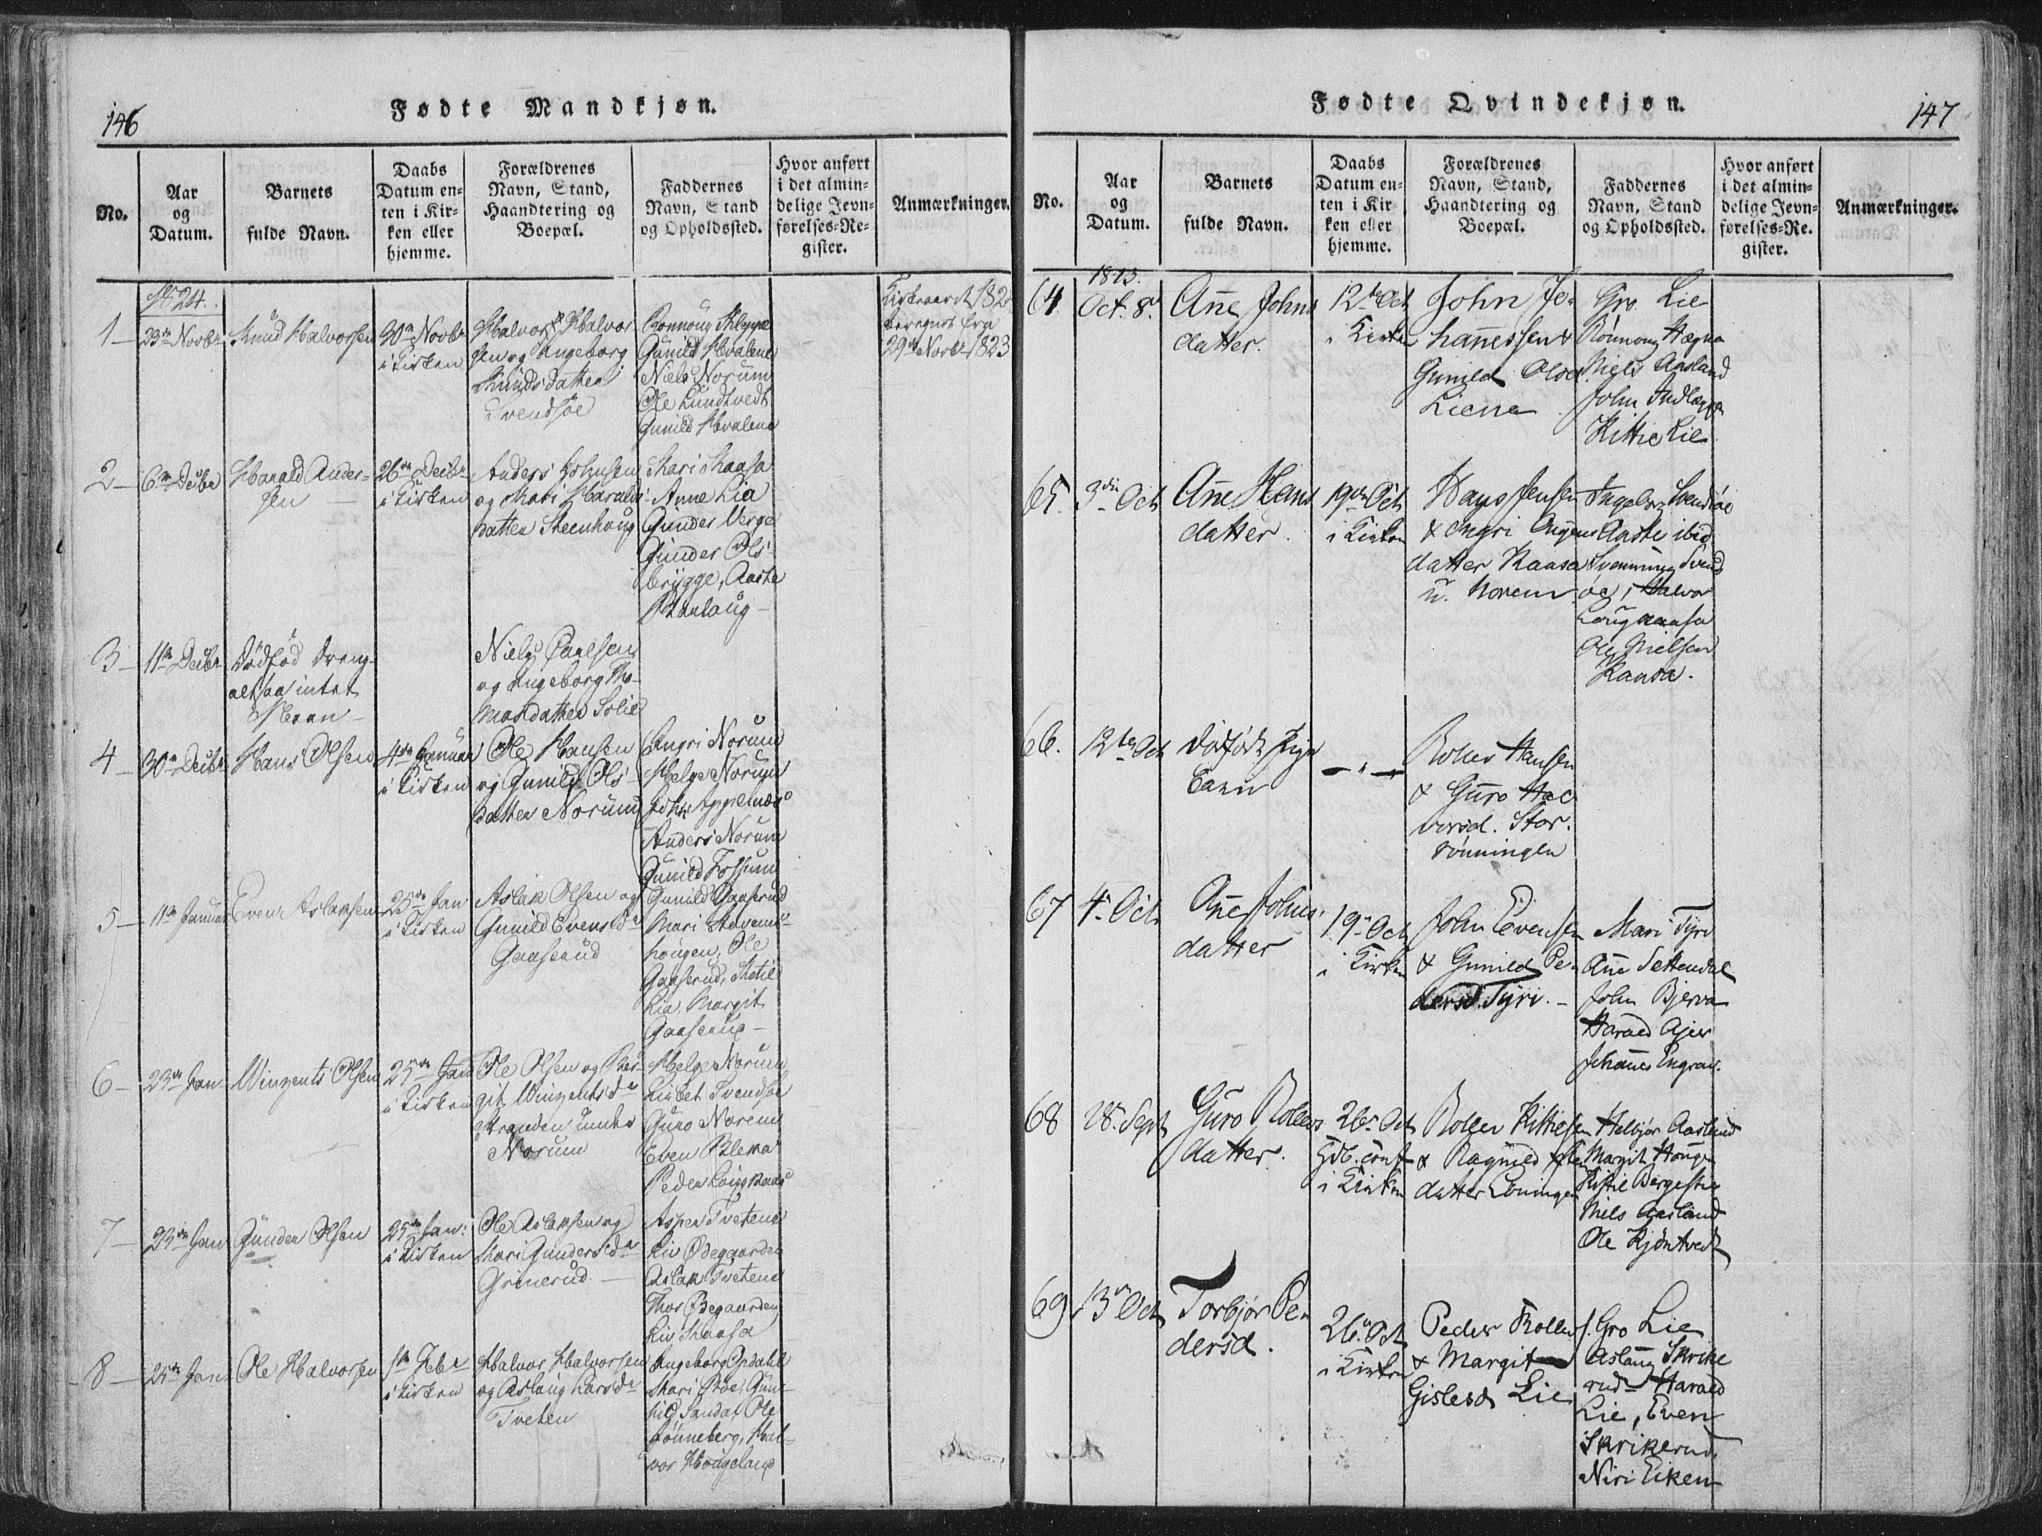 146
Fødte Mandkjøn.
No.
Aar
og
Datum.
Barnets
fulde Navn.
Daabs
Datum en-
ten i Kir-
ken eller
hjemme.
Forældrenes
Navn, Stand,
Haandtering og
Boepæl.
Faddernes
Navn, Stand
og Opholdssted.
Hvor anført
i det almin-
delige Jevn-
førelses-Re-
gister.
Anmærkninger.
29de Novbr 1823
1
23de Novbr
Knud Halvorsen
30te Novbr
i Kirken
Halvor Halvor
sen og Ingeborg
Knudsdatter
Svendsøe
Gunild Hvalene
Niels Norum
Ole Lundtvedt
Gunild Hvalene
2
6te Decbr
Harald Ander-
sen
26de Decbr
i Kirken
Anders Johnsen
og Mari Haralds
datter Steenhoug
Mari Kaasa
Anne Lia
Gunder Verge
Gunder Ols-
brygge, Aaste
3
11te Decbr
Dødfød Dreng-
altsaa intet
Navn
Niels Paulsen
og Ingeborg Tho-
masdatter Solie
4
30te Decbr
Hans Olsen
4de Januar
i Kirken
Ole Hansen
og Gunild Ols-
datter Norum
Ingri Norum
Helge Norum
Anders Norum
Gunild Fossum
5
11te Januar
Even Aslaksen
25de Jan
i Kirken
Aslak Olsen og
Gunild Evensda
Gaaserud
Gunild Gaaserud
Mari Stevens-
hougen, Ole
Gaaserud, Ketil
Lia, Margit
Gaaserud
6
23de Jan
Winzents Olsen
25de Jan
i Kirken
Ole Olsen og Ber-
git Winzentsda
Stranden under
Norum
Helge Norum
Lisbet Svendsøe
Guro Norem
Even Bleka
Peder Langkaas
7
23de Jan
Gunder Olsen
25de Jan:
i Kirken
Ole Aslaksen og
Mari Gundersda
Grinerud
Asper Tvetene
Liv Ødegaarden
Aslak Tvetene
Thor Øegaarden
Liv Kaasa
8
25de Jan
Ole Halvorsen
1te Febr
i Kirken
Halvor Halvorsen
og Aslaug Larsda
Tveten
Ingeborg Opdahl
Mari Øde, Gun-
hild Sanda, Ole
Rønneberg, Hal-
vor Hougeland
147
Fødte Qvindekjøn.
No.
Aar
og
Datum.
Barnets
fulde Navn.
Daabs
Datum en-
ten i Kir-
ken eller
hjemme.
Forældrenes
Navn, Stand,
Haandtering og
Boepæl.
Faddernes
Navn, Stand
og Opholdssted.
Hvor anført
i det almin-
delige Jevn-
førelses-Re-
gister.
Anmærkninger.
1823.
64
Oct. 8de
Añe Johns
datter.
12te Oct
i Kirken
John Jo-
hañessen &
Gunild Olsd.
Liene
Gro Lie
Rønnoug Hægna
Niels Aasland
John
Kittil Lie
65.
3die Oct
Añe Hans
datter.
19de Oct
i Kirken
Hans Jensen
& Ingri
datter Kaasa
u. Norem
Ingebor Svendsøe
Aaste ibid.
Svenning Svends
øe, Halvor
Langkaasa
Ole Nielsen
Kaasa.
66.
12te Oct
Dødfødt Pige
Barn
— " —
Rollev Hansen
& Guro Hal
vorsd. Stor-
rønningen
67
4de Oct
Añe Johns.
datter
19de Oct
i Kirken
John Evensen
& Gunild Pe-
dersd. Tyri.
Mari Tyri
Añe Settendal
John Bjerva
Harald Ajer
Johañes Engrav.
68
28. Sept
Guro Rollevs
datter.
26de Oct
i Kirken
Rollev Kittilsen
& Ragnild
datter
Helbjør Aasland
Margit Hougen
Niels Aasland
Ole Kjøntvedt
69
13de Oct
Torbjør Pe-
dersd.
26de Oct
i Kirken
Peder Rollevs.
& Margit
Gislesd Lie
Gro Lie
Aslaug Skrike
rud Harald
Lie, Even
Skrikerud.
Niri Eiken